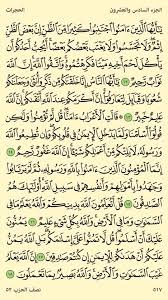 الجزء السادس والعشرون الحجرات
يَٰٓأَيُّهَا ٱلَّذِينَ ءَامَنُواْ ٱجۡتَنِبُواْ كَثِيرٗا مِّنَ ٱلظَّنِّ إِنَّ بَعۡضَ ٱلظَّنِّ
إِثۡمٞۖ وَلَا تَجَسَّسُواْ وَلَا يَغۡتَب بَّعۡضُكُم بَعۡضًاۚ أَيُحِبُّ أَحَدُكُمۡ أَن
يَأۡكُلَ لَحۡمَ أَخِيهِ مَيۡتٗا فَكَرِهۡتُمُوهُۚ وَٱتَّقُواْ ٱللَّهَۚ إِنَّ ٱللَّهَ
تَوَّابٞ رَّحِيمٞ ١٢ يَٰٓأَيُّهَا ٱلنَّاسُ إِنَّا خَلَقۡنَٰكُم مِّن ذَكَرٖ وَأُنثَىٰ وَجَعَلۡنَٰكُمۡ
شُعُوبٗا وَقَبَآئِلَ لِتَعَارَفُوٓاْۚ إِنَّ أَكۡرَمَكُمۡ عِندَ ٱللَّهِ أَتۡقَىٰكُمۡۚ إِنَّ ٱللَّهَ
عَلِيمٌ خَبِيرٞ ١٣ قَالَتِ ٱلۡأَعۡرَابُ ءَامَنَّاۖ قُل لَّمۡ تُؤۡمِنُواْ وَلَٰكِن قُولُوٓاْ
أَسۡلَمۡنَا وَلَمَّا يَدۡخُلِ ٱلۡإِيمَٰنُ فِي قُلُوبِكُمۡۖ وَإِن تُطِيعُواْ ٱللَّهَ
وَرَسُولَهُۥ لَا يَلِتۡكُم مِّنۡ أَعۡمَٰلِكُمۡ شَيۡـًٔاۚ إِنَّ ٱللَّهَ غَفُورٞ رَّحِيمٌ ١٤
إِنَّمَا ٱلۡمُؤۡمِنُونَ ٱلَّذِينَ ءَامَنُواْ بِٱللَّهِ وَرَسُولِهِۦ ثُمَّ لَمۡ يَرۡتَابُواْ
وَجَٰهَدُواْ بِأَمۡوَٰلِهِمۡ وَأَنفُسِهِمۡ فِي سَبِيلِ ٱللَّهِۚ أُوْلَٰٓئِكَ هُمُ
ٱلصَّٰدِقُونَ ١٥ قُلۡ أَتُعَلِّمُونَ ٱللَّهَ بِدِينِكُمۡ وَٱللَّهُ يَعۡلَمُ مَا فِي
ٱلسَّمَٰوَٰتِ وَمَا فِي ٱلۡأَرۡضِۚ وَٱللَّهُ بِكُلِّ شَيۡءٍ عَلِيمٞ ١٦
يَمُنُّونَ عَلَيۡكَ أَنۡ أَسۡلَمُواْۖ قُل لَّا تَمُنُّواْ عَلَيَّ إِسۡلَٰمَكُمۖ بَلِ ٱللَّهُ يَمُنُّ
عَلَيۡكُمۡ أَنۡ هَدَىٰكُمۡ لِلۡإِيمَٰنِ إِن كُنتُمۡ صَٰدِقِينَ ١٧ إِنَّ ٱللَّهَ يَعۡلَمُ غَيۡبَ
ٱلسَّمَٰوَٰتِ وَٱلۡأَرۡضِۚ وَٱللَّهُ بَصِيرُۢ بِمَا تَعۡمَلُونَ ١٨
نصف الحزب ٥٢ ٥١٧